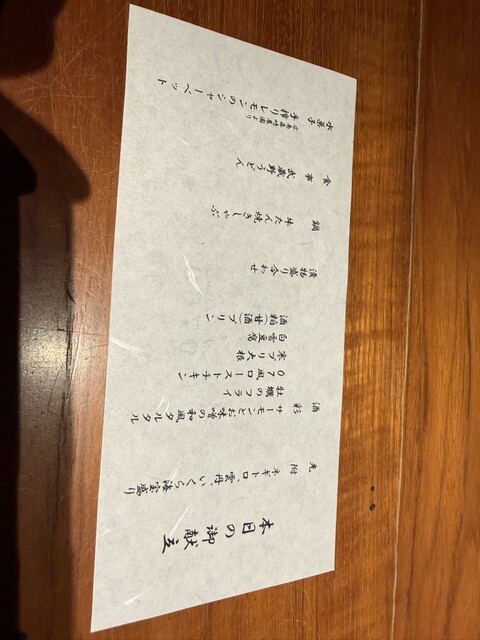 本日の御献立
先附
ネギトロ、雲丹、いくら海宝盛り
酒彩
サーモンとお味噌の和風タルタル
牡蠣のフライ
07風ローストチキン
寒ブリ大根
白雪豆腐
酒粕(甘酒)プリン
漬物盛り合わせ
鍋
牛たん焼きしゃぶ
食事
武蔵野うどん
水菓子
手搾りレモンのシャーベット